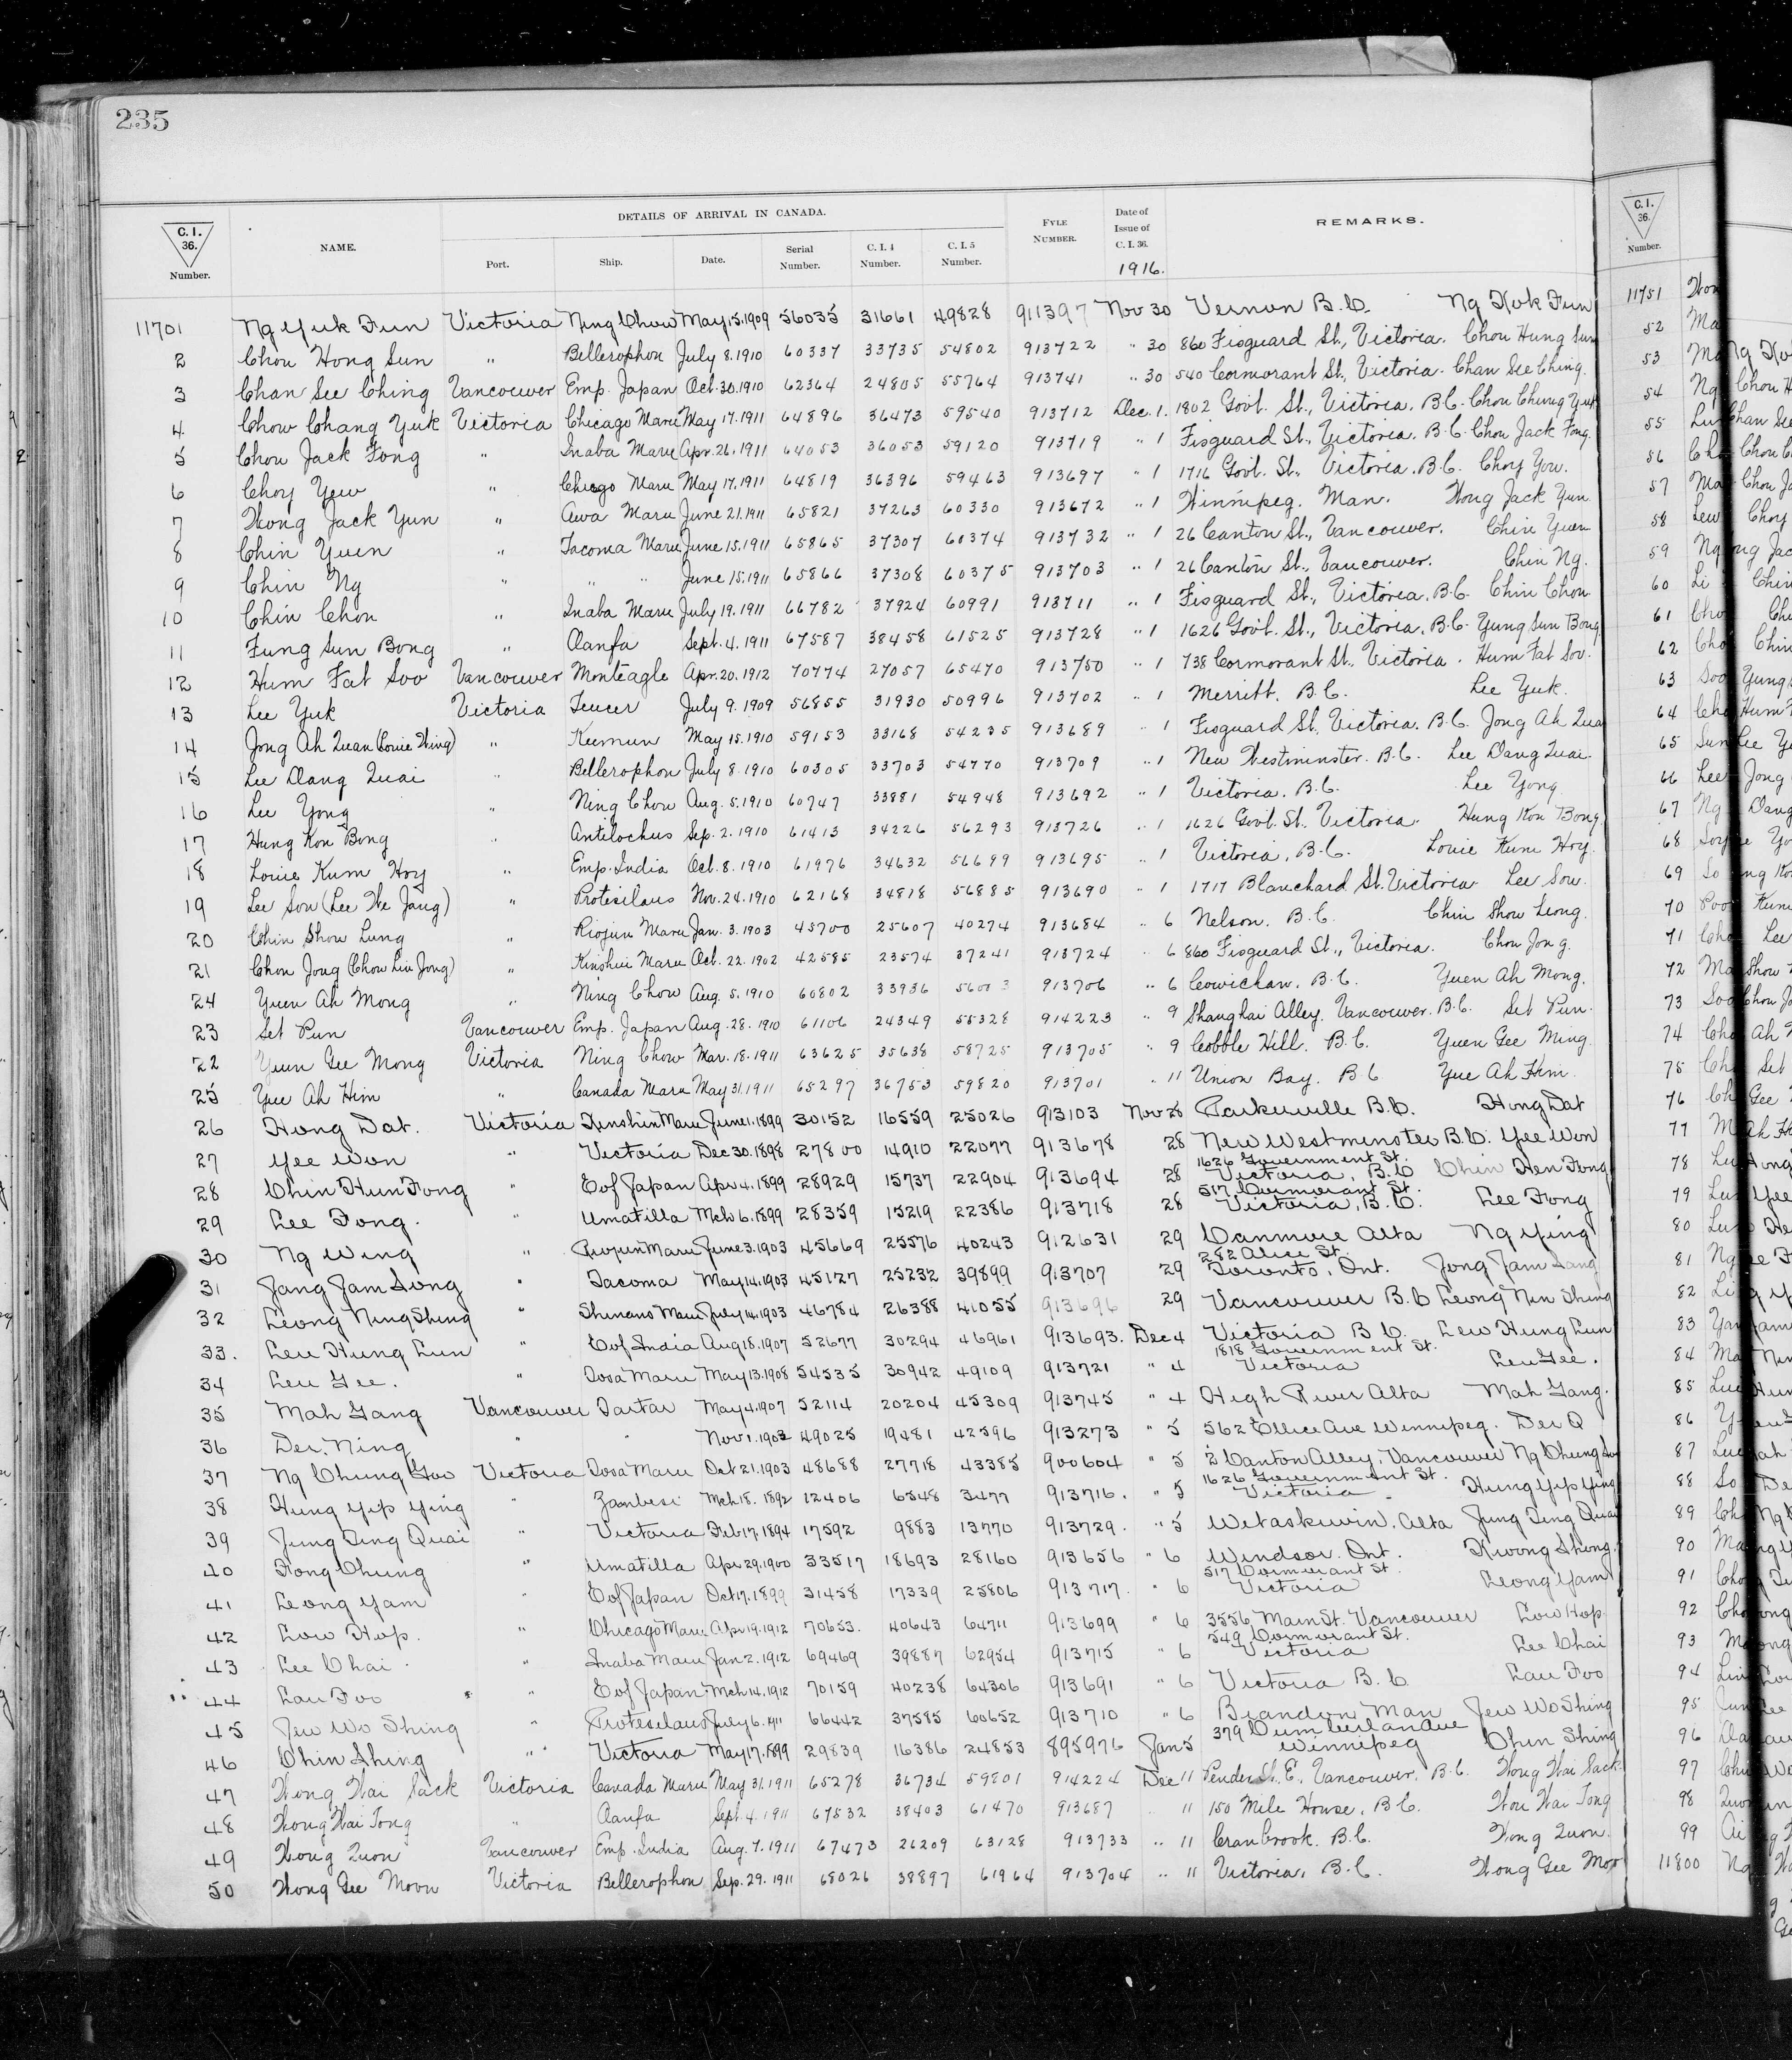 235
DETAILS OF ARRIVAL IN CANADA.
C. I. 36. Number. NAME. Port. Ship. Date. Serial Number. C. I. 4 Number. C. I. 5 Number. FYLE NUMBER. Date of Issue of C. I. 36. 1916. REMARKS.
11701 Ng Yuk Fun Victoria Ning Chow May 15. 1909 56035 31661 49828 911397 Nov 30 Vernon B.C. Ng Kok Fun
2 Chou Hong Sun " Bellerophon July 8. 1910 60337 33735 54802 913722 " 30 860 Fisguard St., Victoria. Chou Hung Sun
3 Chan See Ching Vancouver Emp. Japan Oct. 30. 1910 62364 24805 55764 913741 " 30 540 Cormorant St., Victoria. Chan See Ching.
4 Chow Chang Yuk Victoria Chicago Maru May 17. 1911 64896 36473 59540 913712 Dec. 1. 1802 Govt. St., Victoria. B.C. Chou Chung Yuk
5 Chou Jack Fong " Inaba Maru Apr. 26. 1911 64053 36053 59120 913719 " 1 Fisguard St., Victoria. B.C. Chou Jack Fong.
6 Choy Yew " Chicago Maru May 17. 1911 64819 36396 59463 913697 " 1 1716 Govt. St., Victoria. B.C. Choy Yow.
7 Wong Jack Yun " Awa Maru June 21. 1911 65821 37263 60330 913672 " 1 Winnipeg. Man. Wong Jack Yun
8 Chin Yuen " Tacoma Maru June 15. 1911 65865 37307 60374 913732 " 1 26 Canton St., Vancouver. Chin Yuen
9 Chin Ng " " " June 15. 1911 65866 37308 60375 913703 " 1 26 Canton St., Vancouver. Chin Ng.
10 Chin Chou " Inaba Maru July 19. 1911 66782 37924 60991 913711 " 1 Fisguard St., Victoria. B.C. Chin Chou
11 Fung Sun Bong " Oanfa Sept. 4. 1911 67587 38458 61525 913728 " 1 1626 Govt. St., Victoria. B.C. Yung Sun Bong
12 Hum Fat Soo Vancouver Monteagle Apr. 20. 1912 70774 27057 65470 913750 " 1 738 Cormorant St., Victoria. Hum Fat Soo.
13 Lee Yuk Victoria Teucer July 9. 1909 56855 31930 50996 913702 " 1 Merritt. B.C. Lee Yuk.
14 Jong Ah Quan (Louie Wing) " Keemun May 15. 1910 59153 33168 54235 913689 " 1 Fisguard St. Victoria. B.C. Jong Ah Qua
15 Lee Dang Quai " Bellerophon July 8. 1910 60305 33703 54770 913709 " 1 New Westminster. B.C. Lee Dang Quai.
16 Lee Yong " Ning Chow Aug. 5. 1910 60747 33881 54948 913692 " 1 Victoria. B.C. Lee Yong
17 Hung Kou Bong " Antilochus Sep. 2. 1910 61413 34226 56293 913726 " 1 1626 Govt. St. Victoria. Hung Kou Bong
18 Louie Kum Hoy " Emp. India Oct. 8. 1910 61976 34632 56699 913695 " 1 Victoria, B.C. Louie Kum Hoy.
19 Lee Sou (Lee We Jang) " Protesilaus Nov. 24. 1910 62168 34818 56885 913690 " 1 1717 Blanchard St. Victoria Lee Sou.
20 Chin Show Lung " Riojun Maru Jan. 3. 1903 45700 25607 40274 913684 " 6 Nelson. B.C. Chin Show Leong.
21 Chou Jong (Chow Liu Jong) " Kinshiu Maru Oct. 22. 1902 42585 23574 37241 913724 " 6 860 Fisguard St., Victoria. Chou Jong.
24 Yuen Ah Mong " Ning Chow Aug. 5. 1910 60802 33936 913706 " 6 Cowichan. B.C. Yuen Ah Mong.
23 Set Pun Vancouver Emp. Japan Aug. 28. 1910 61106 24349 55328 914223 " 9 Shanghai Alley. Vancouver. B.C. Set Pun.
22 Yuen Gee Mong Victoria Ning Chow Mar. 18. 1911 63625 35638 58725 913705 " 9 Cobble Hill. B.C. Yuen Gee Ming.
25 Yue Ah Him " Canada Maru May 31. 1911 65297 36753 59820 913701 " 11 Union Bay. B.C Yue Ah Him.
26 Hong Dat. Victoria Kinshiu Maru June 1. 1899 30152 16559 25026 913103 Nov 28 Barkerville B.C. Hong Dat
27 Yee Won " Victoria Dec 30. 1898 27800 14910 22077 913678 28 New Westminster B.C. Yee Won
28 Chin Hun Fong " E of Japan Apr 4. 1899 28929 15737 22904 913694 28 1626 Government St. Victoria, B.C Chin Hen Fong
29 Lee Fong. " Umatilla Mch 6. 1899 28359 15219 22386 913718 28 517 Cormorant St. Victoria, B.C. Lee Fong
30 Ng Wing " Riojun Maru June 3. 1903 45669 25576 40243 912631 29 Canmore Alta Ng Ying
31 Jang Jam Song " Tacoma May 14. 1903 45127 25232 39899 913707 29 282 Alice St. Toronto, Ont. Jong Jam Sang
32 Leong Ning Shing " Shinano Maru July 14. 1903 46784 26388 41055 913696 29 Vancouver B.C Leong Nin Shing
33. Leu Hung Lun " E of India Aug 18. 1907 52677 30294 46961 913693. Dec 4 Victoria B.C. Lew Hung Lun
34 Leu Gee. " Tosa Maru May 13. 1908 54535 30942 49109 913721 " 4 1818 Government St. Victoria Leu Gee.
35 Mah Gang Vancouver Tartar May 4. 1907 52114 20204 45309 913745 " 4 High River Alta Mah Gang.
36 Der. Ning " " Nov 1. 1903 49025 19481 42596 913273 " 5 562 Ellice Ave Winnipeg. Der Q
37 Ng Chung Goo Victoria Tosa Maru Oct 21. 1903 48688 27718 43385 900604 " 5 2 Canton Alley, Vancouver Ng Chung
38 Hung Yip Ying " Zambesi Mch 18. 1892 12406 6548 3477 913716. " 5 1626 Government St. Victoria Hung Yip Ying
39 Jung Ting Quai " Victoria Feb 17. 1894 17592 9883 13770 913729. " 5 Wetaskiwin. Alta Jung Ting Quai
40 Fong Chung " Umatilla Apr 29. 1900 33517 18693 28160 913656 " 6 Windsor. Ont. Kwong Shong.
41 Leong Yam " E of Japan Oct 17. 1899 31458 17339 25806 913717. " 6 517 Cormorant St. Victoria Leong Yam
42 Low Hop. " Chicago Maru Apr 19. 1912 70653. 40643 64711 913699 " 6 3556 Main St. Vancouver Low Hop.
43 Lee Chai. " Inaba Maru Jan 2. 1912 69469 39887 62954 913715 " 6 549 Cormorant St. Victoria Lee Chai
44 Lau Foo " E of Japan Mch 14. 1912 70159 40238 64306 913691 " 6 Victoria B.C Lau Foo
45 Jew Wo Shing " Protesilaus July 6. 1911 66442 37585 60652 913710 " 6 Brandon Man Jew Wo Shing
46 Chin Shing " Victoria May 17. 1899 29839 16386 24853 895976 Jan 5 379 Winnipeg Chin Shing
47 Wong Wai Sack Victoria Canada Maru May 31. 1911 65278 36734 59801 914224 Dec 11 Pender St. E., Vancouver. B.C. Wong Wai Sack
48 Wong Wai Tong " Oanfa Sept 4. 1911 67532 38403 61470 913687 11 150 Mile House. B.C. Wou Wai Tong
49 Wong Quon Vancouver Emp. India Aug. 7. 1911 67473 26209 63128 913733 " 11 Cranbrook. B.C. Wong Quon.
50 Wong Gee Moon Victoria Bellerophon Sep. 29. 1911 68026 38897 61964 913704 " 11 Victoria. B.C. Wong Gee Moo
C. I. 36. Number.
11751
52
53
54
55
56
57
58
59
60
61
62
63
64
65
66
67
68
69
70
71
72
73
74
75
76
77
78
79
80
81
82
83
84
85
86
87
88
89
90
91
92
93
94
95
96
97
98
99
11800